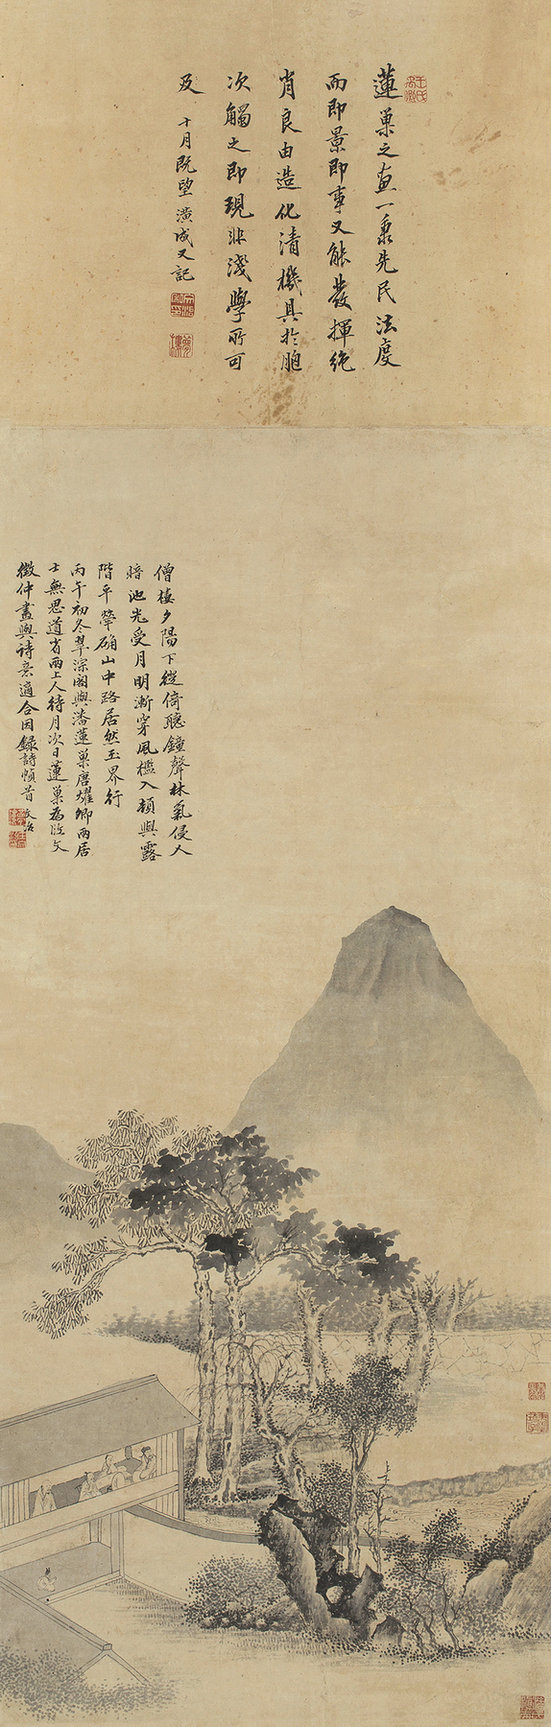 蓮巢之畫一秉先民法度
而即景即事又能發揮絕
肖良由造化清機具於胞
次觸之即現非淺學所可
及 十月既望 潢成又記
僧樓夕陽下徙倚聽鐘聲林氣侵人
暗池光受月明漸穿風檻入頻與露
階平犖确山中路居然玉界行
丙午初冬翠深閣與潘蓮巢唐耀卿兩居
士無思道省兩上人待月次日蓮巢為臨文
徵仲畫與詩意適合因錄詩幀首 文治